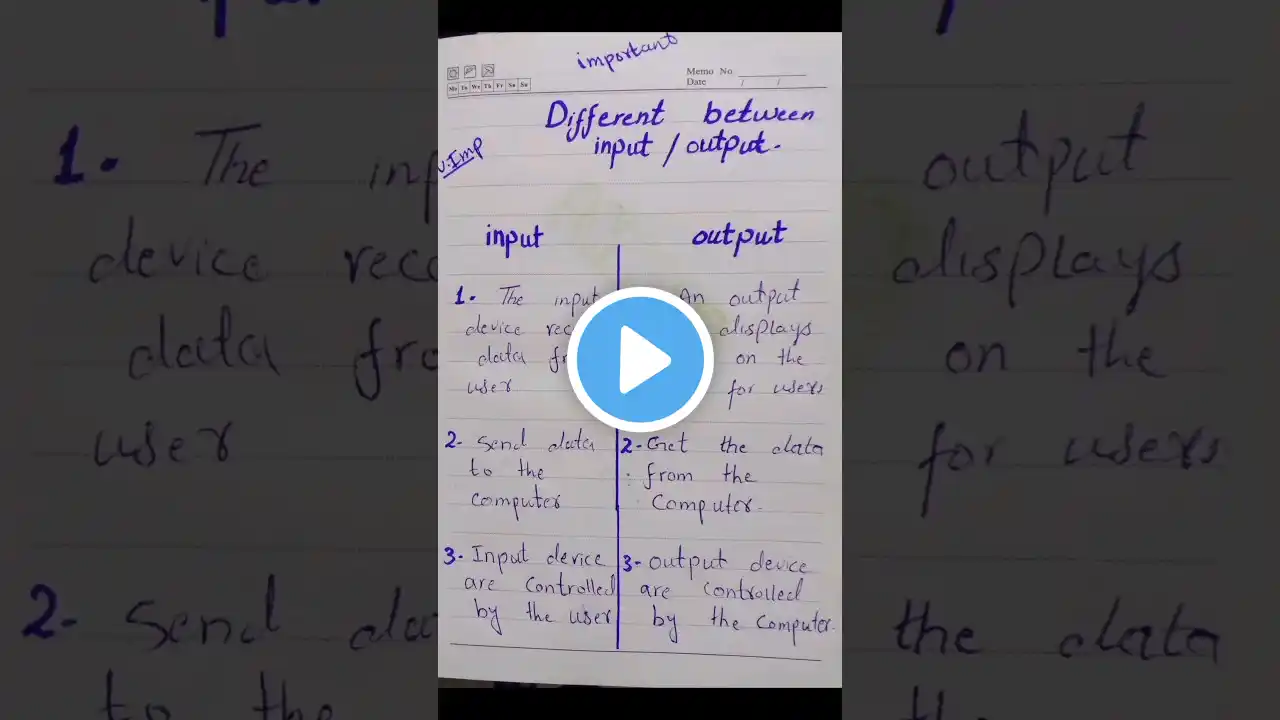 important
Memo No
Date / /
Mo Tu We Th Fr Sa Su
v.Imp
Different between
input / output.
input
1. The input
device rec
data fr
user
2- Send data
to the
computer
3- Input device
are controlled
by the user
output
An output
displays
on the
for users
2- Get the data
from the
Computer.
3- output device
are controlled
by the computer.